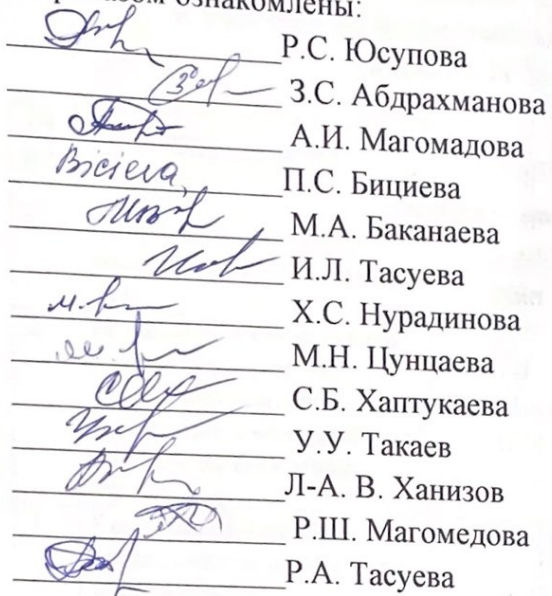 ознакомлены:
Р.С. Юсупова
З.С. Абдрахманова
А.И. Магомадова
Biciева, П.С. Бициева
М.А. Баканаева
И.Л. Тасуева
Х.С. Нурадинова
М.Н. Цунцаева
С.Б. Хаптукаева
У.У. Такаев
Л-А. В. Ханизов
Р.Ш. Магомедова
Р.А. Тасуева